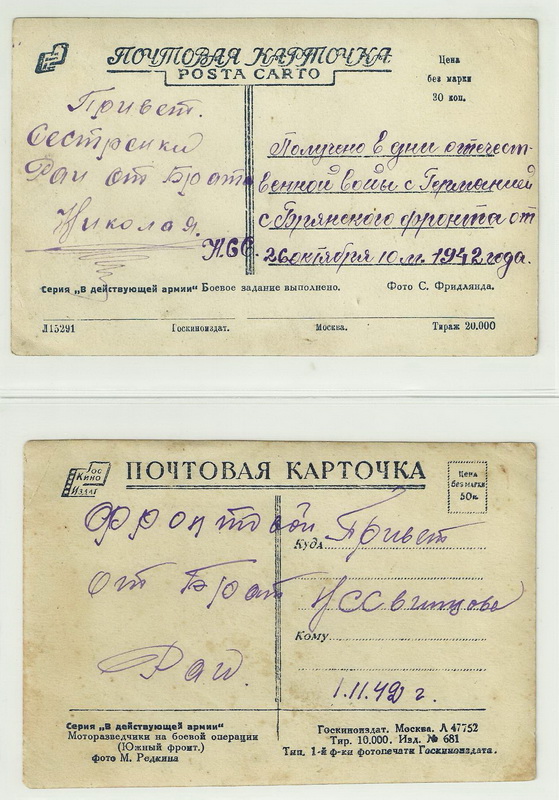 ПОЧТОВАЯ КАРТОЧКА
POSTA CARTO
Цена
без марки
30 коп.
Привет.
Сестренки
Раи от Брата
Николая.
Н.С.С.
Получено в дни отечест-
венной войы с Германией
с Брянского фронта от
26 октября 10 м. 1942 года.
Серия „В действующей армии“ Боевое задание выполнено. Фото С. Фридлянда.
Л15291 Госкиноиздат. Москва. Тираж 20.000
Гос
Кино
Издат
ПОЧТОВАЯ КАРТОЧКА
Цена
без марки
50 к.
Фронтовой
от Брат
Раи.
Куда Привет
НССвинцова
Кому
1.11.42 г.
Серия „В действующей армии“
Моторазведчики на боевой операции
(Южный фронт.)
фото М. Редкина
Госкиноиздат. Москва. Л 47752
Тир. 10.000. Изд. № 681
Тип. 1-й ф-ки фотопечати Госкиноиздата.